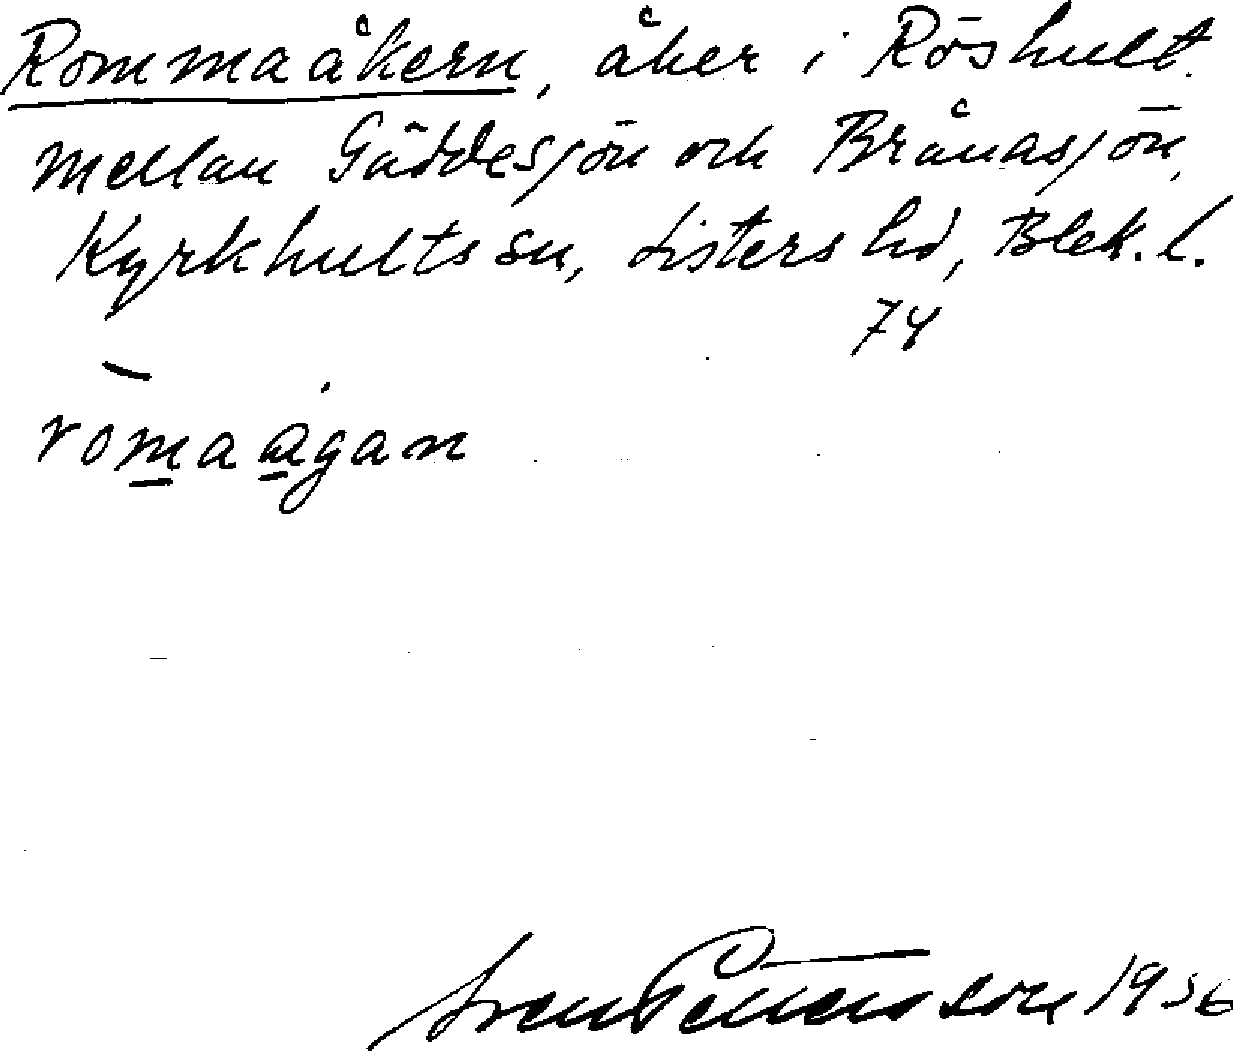 Rommaåkern, åker i Röshult
mellan Gäddesjön och Brånasjön,
Kyrkhults sn, Listers hd, Blek. l.
74
romaågan
Sven Pettersson 1956